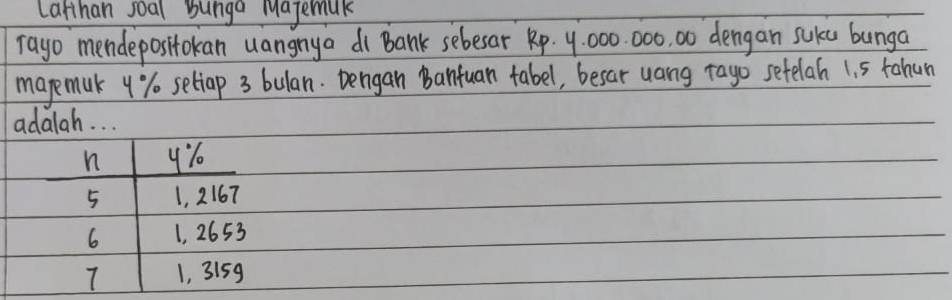 Latihan soal Bunga Majemuk
Tayo mendepositokan uangnya di Bank sebesar Rp. 4.000.000,00 dengan suku bunga
majemuk 4% setiap 3 bulan. Dengan Bantuan tabel, besar uang Tayo setelah 1,5 tahun
adalah...
n 4%
5 1,2167
6 1,2653
7 1,3159